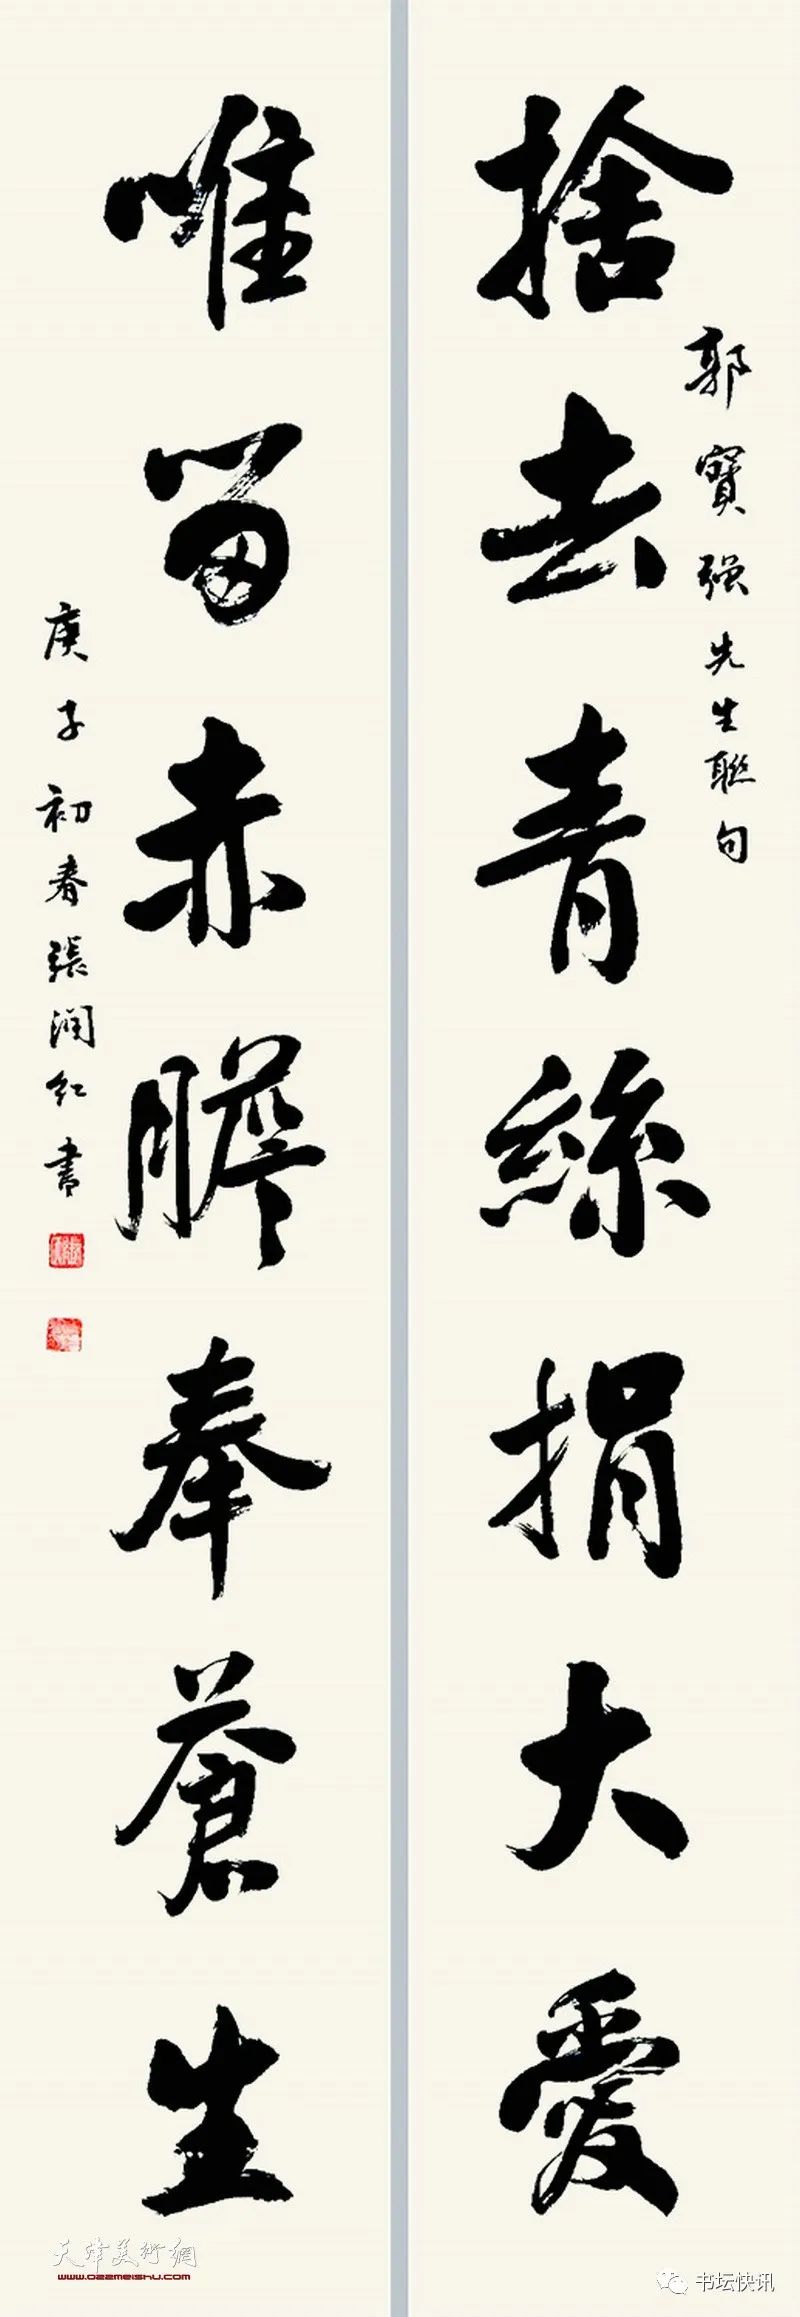 捨去青絲捐大愛
郭寶强先生聯句
唯留赤膽奉蒼生
庚子初春張潤红書
天津美術網
www.022meishu.com
书坛快讯